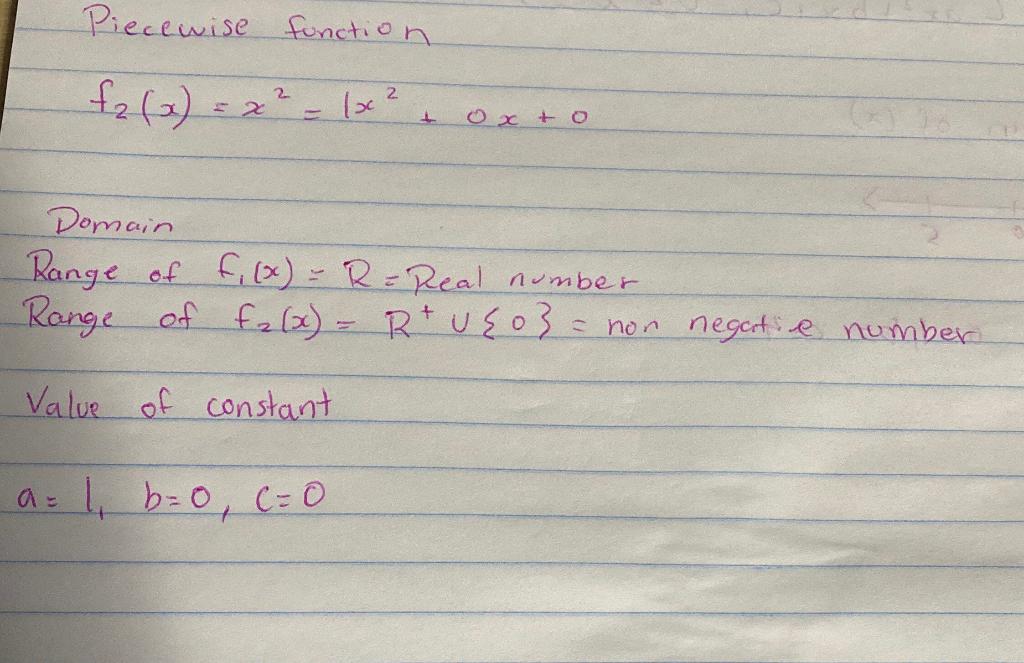 Piecewise function
f₂(x) = x² = 1x² + 0x + 0
Domain
Range of f₁(x) = R = Real number
Range of f₂(x) = R⁺ ∪ {0} = non negatie number
Value of constant
a = 1, b = 0, c = 0